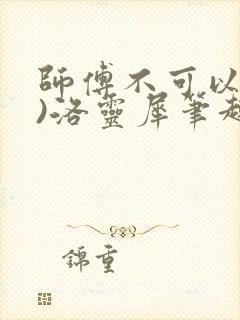 師傅不可以
)洛靈犀筆趣
錦重